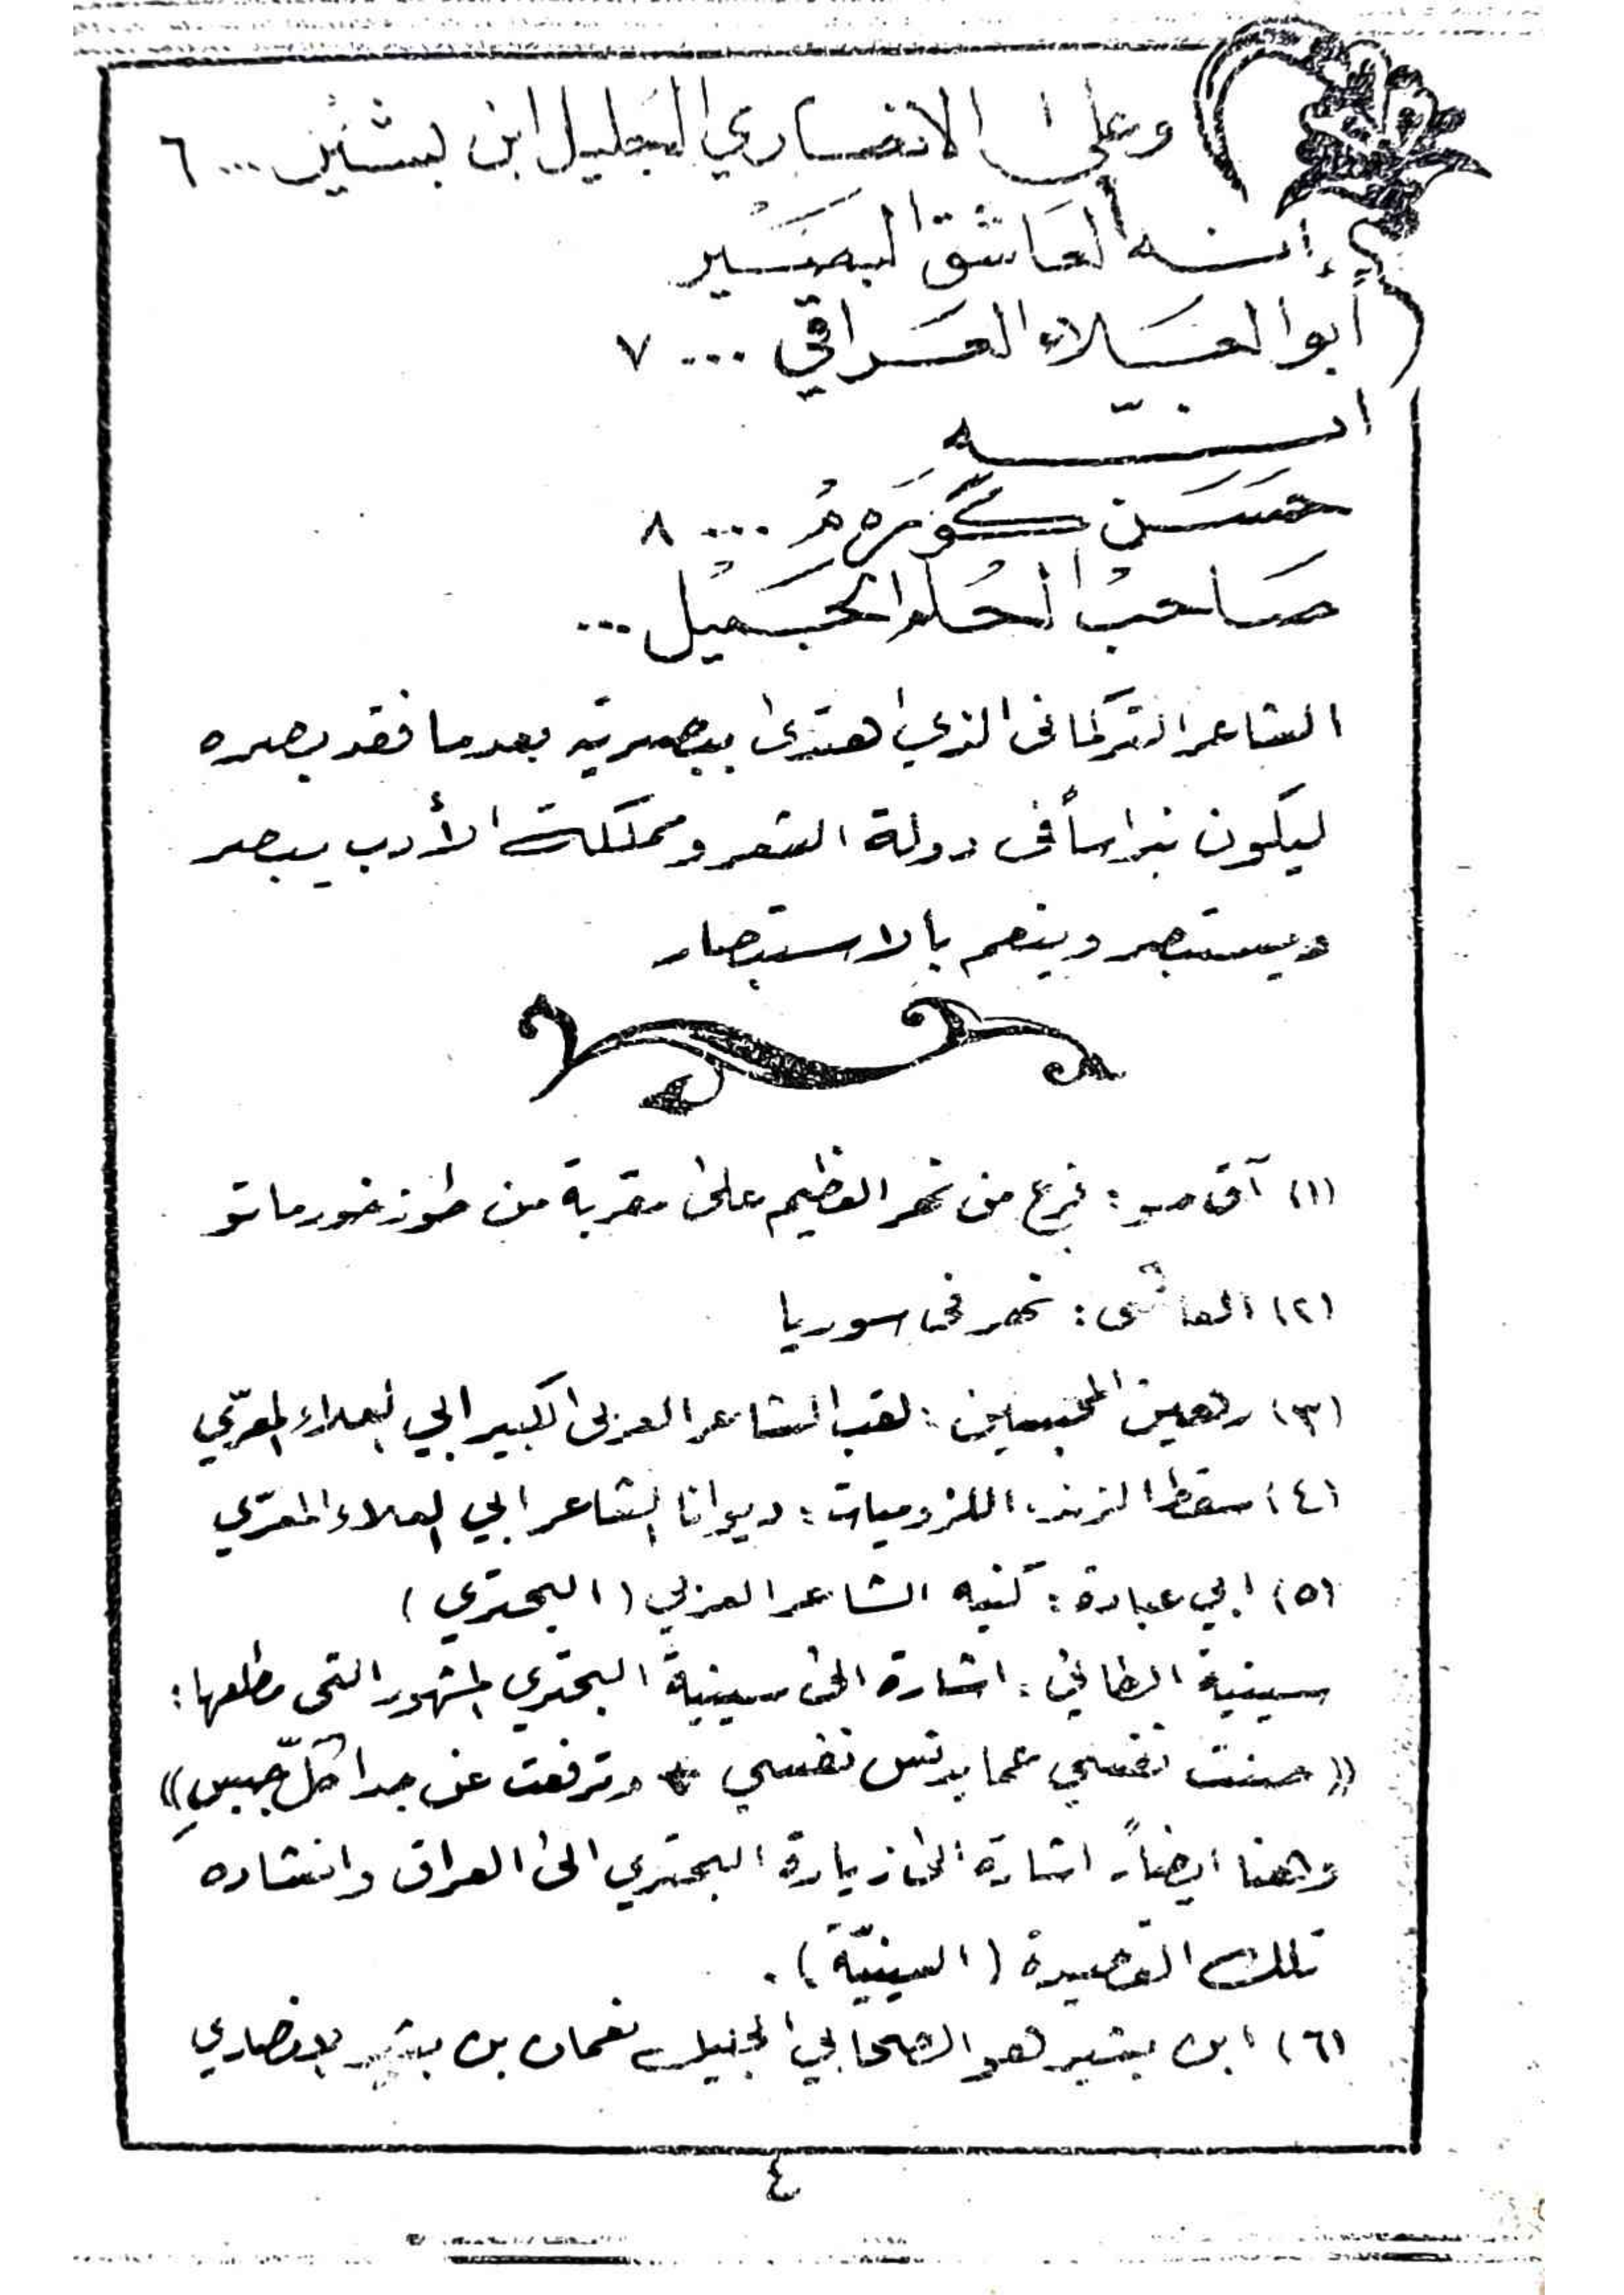 وعلى الانصاري الجليل ابن بشير ... ٦
إنه العاشق البصير
أبو العلاء العراقي ... ٧
انّه
حسن گوره م ... ٨
صاحبُ الحلم الجميل ...
الشاعر التركماني الذي اهتدى ببصيرته بعدما فقد بصره
ليكون نبراساً في دولة الشعر ومملكة الأدب يبصر
ويستبصر وينعم بالاستبصار
(١) آق صو : فرع من نهر العظيم على مقربة من طوز خورماتو
(٢) العاصي : نهر في سوريا
(٣) رهين المحبسين : لقب الشاعر العربي الكبير ابي العلاء المعرّي
(٤) سقط الزند، اللزوميات : ديوانا الشاعر ابي العلاء المعرّي
(٥) ابي عبادة : كنيه الشاعر العربي (البحتري)
سينية الطائي : اشارة الى سينية البحتري المشهور التي مطلعها :
«صنت نفسي عما يدنس نفسي * وترفعت عن جدا كلّ جبسِ»
وهنا ايضاً اشارة الى زيارة البحتري الى العراق وانشاده
تلك القصيدة (السينيّة) .
(٦) ابن بشير هو الصحابي الجليل نعمان بن بشير الانصاري
٤